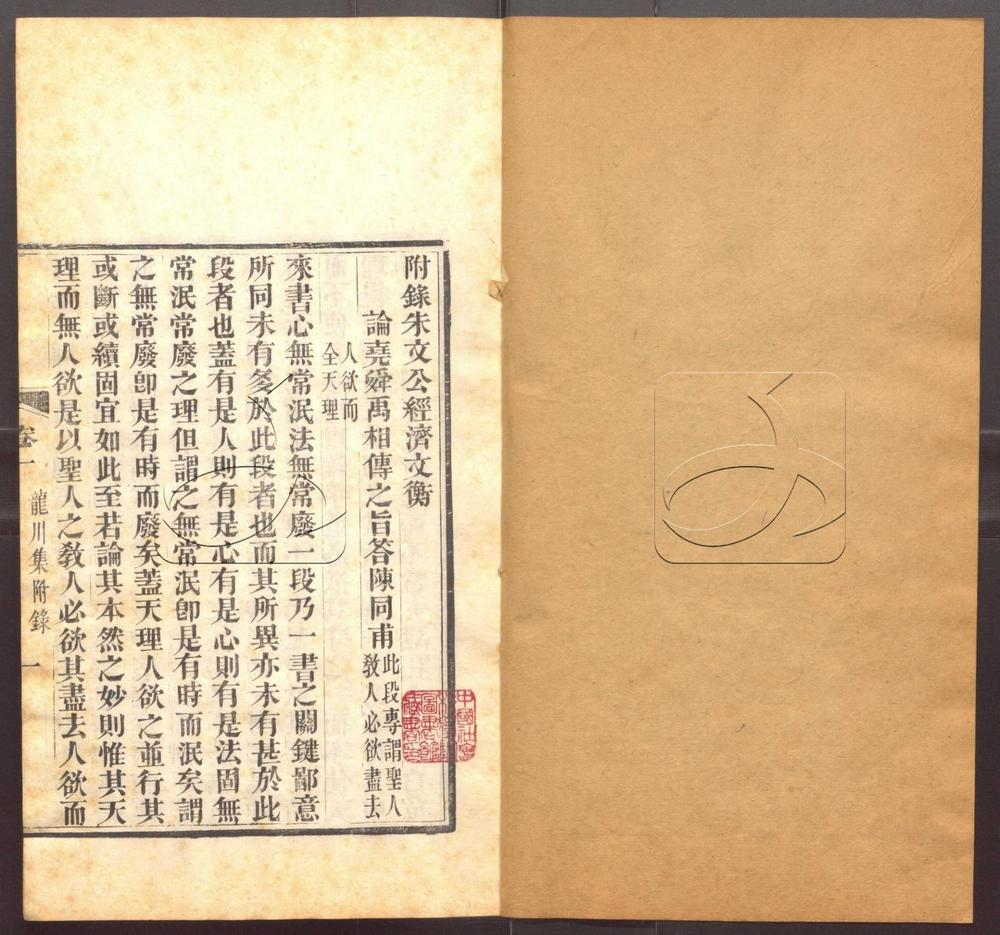 附錄朱文公經濟文衡
論堯舜禹相傳之旨答陳同甫此段專謂聖人
教人必欲盡去
人欲而
全天理
來書心無常泯法無常廢一段乃一書之關鍵鄙意
所同未有多於此段者也而其所異亦未有甚於此
段者也蓋有是人則有是心有是心則有是法固無
常泯常廢之理但謂之無常泯卽是有時而泯矣謂
之無常廢卽是有時而廢矣蓋天理人欲之並行其
或斷或續固宜如此至若論其本然之妙則惟其天
理而無人欲是以聖人之敎人必欲其盡去人欲而
卷一 龍川集附錄 一